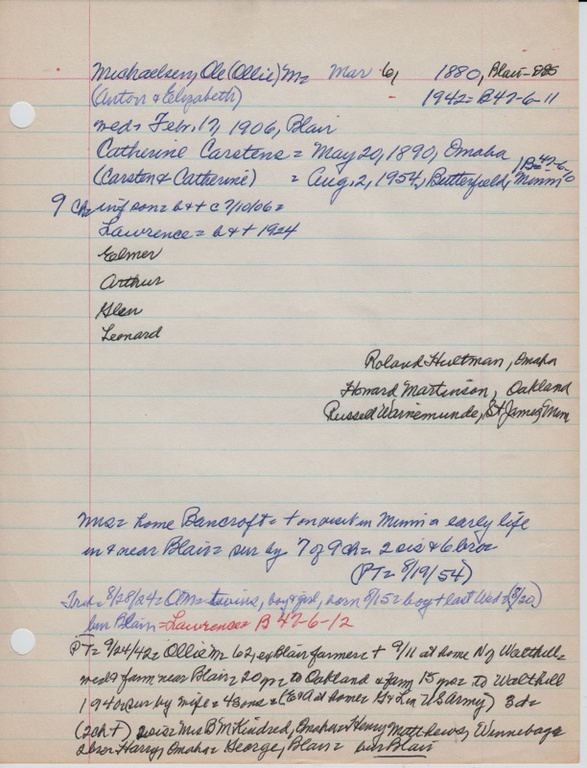 Michaelsen, Ole (Ollie) M= Mar 6, 1880, Blair-
(Anton & Elizabeth) 1942= B47-6-11
wed= Febr. 17, 1906, Blair
Catherine Carstens = May 20, 1890, Omaha
(Carsten & Catherine) = Aug. 2, 1954, Butterfield, Minn B=47-6-10
9 Ch= inf son= b&+ c 7/10/06=
Lawrence= b&+ 1924
Elmer
Arthur
Glen
Leonard
Roland Hultman, Omaha
Howard Martinson, Oakland
Russell Warnemunde, St James, Minn
Mrs= home Bancroft= + on visit in Minn= early life
in & near Blair= sur by 7 of 9 ch= 2 sis & 6 bro=
(PT= 8/19/54)
8/28/24= OM= twins, boy & girl, born 8/15= boy + last Wed= (8/20)
bur Blair= Lawrence= B 47-6-12
PT= 9/24/42= Ollie M= 62, ex Blair farmer= + 9/11 at home N of Walthill=
wed & farm near Blair= 20 yr= to Oakland & farm 15 mo= to Walthill
1940= sur by wife= 4 sons= (E&A at home= G&L in US Army) 3d=
(2ch+) 2sis= Mrs B M Kindred, Omaha= Henry Matthews, Winnebago
2bro= Harry, Omaha= George, Blair= bur Blair